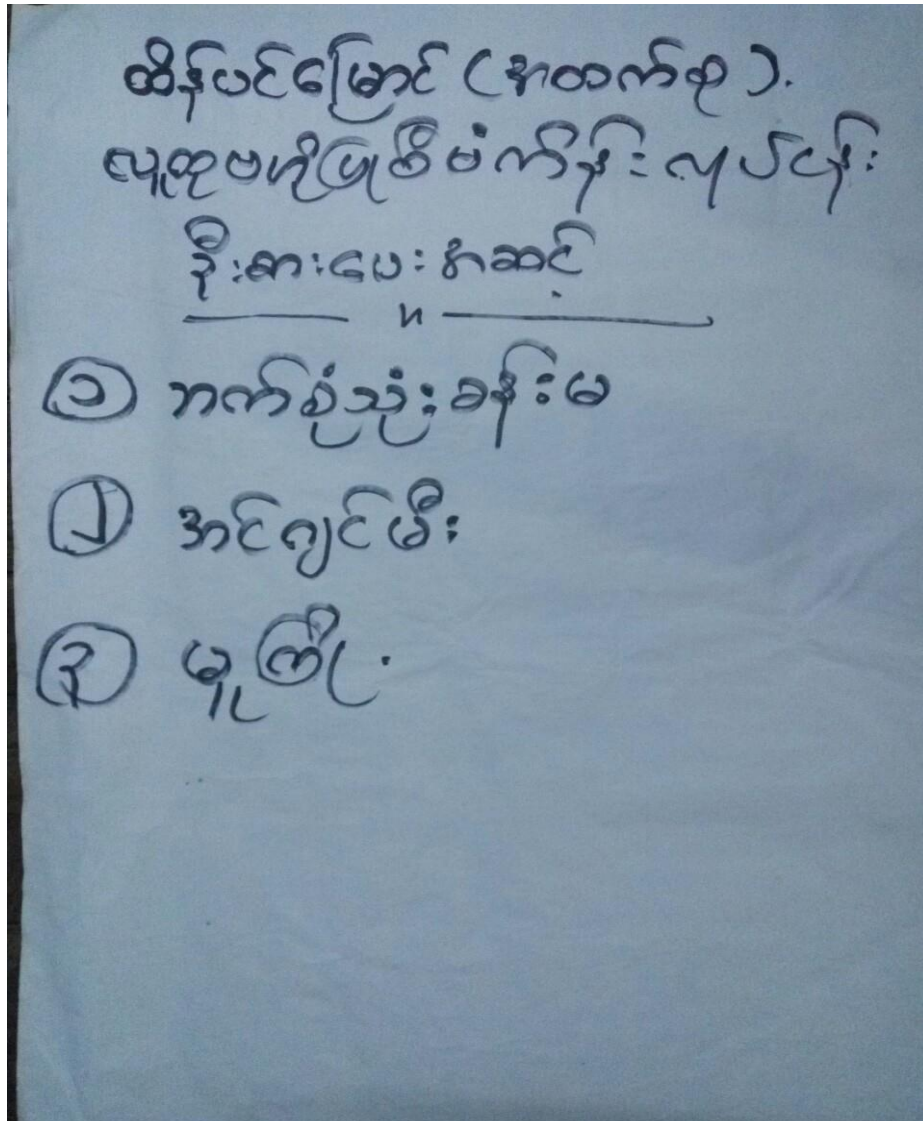 ထိန်ပင်မြောင် (အထက်စု).
လူထုဗဟိုပြုစီမံကိန်းလုပ်ငန်း
ဦးစားပေးအဆင့်
၁ ဘက်စုံသုံးခန်းမ
၂ အင်ဂျင်မီး
၃ မူကြို.